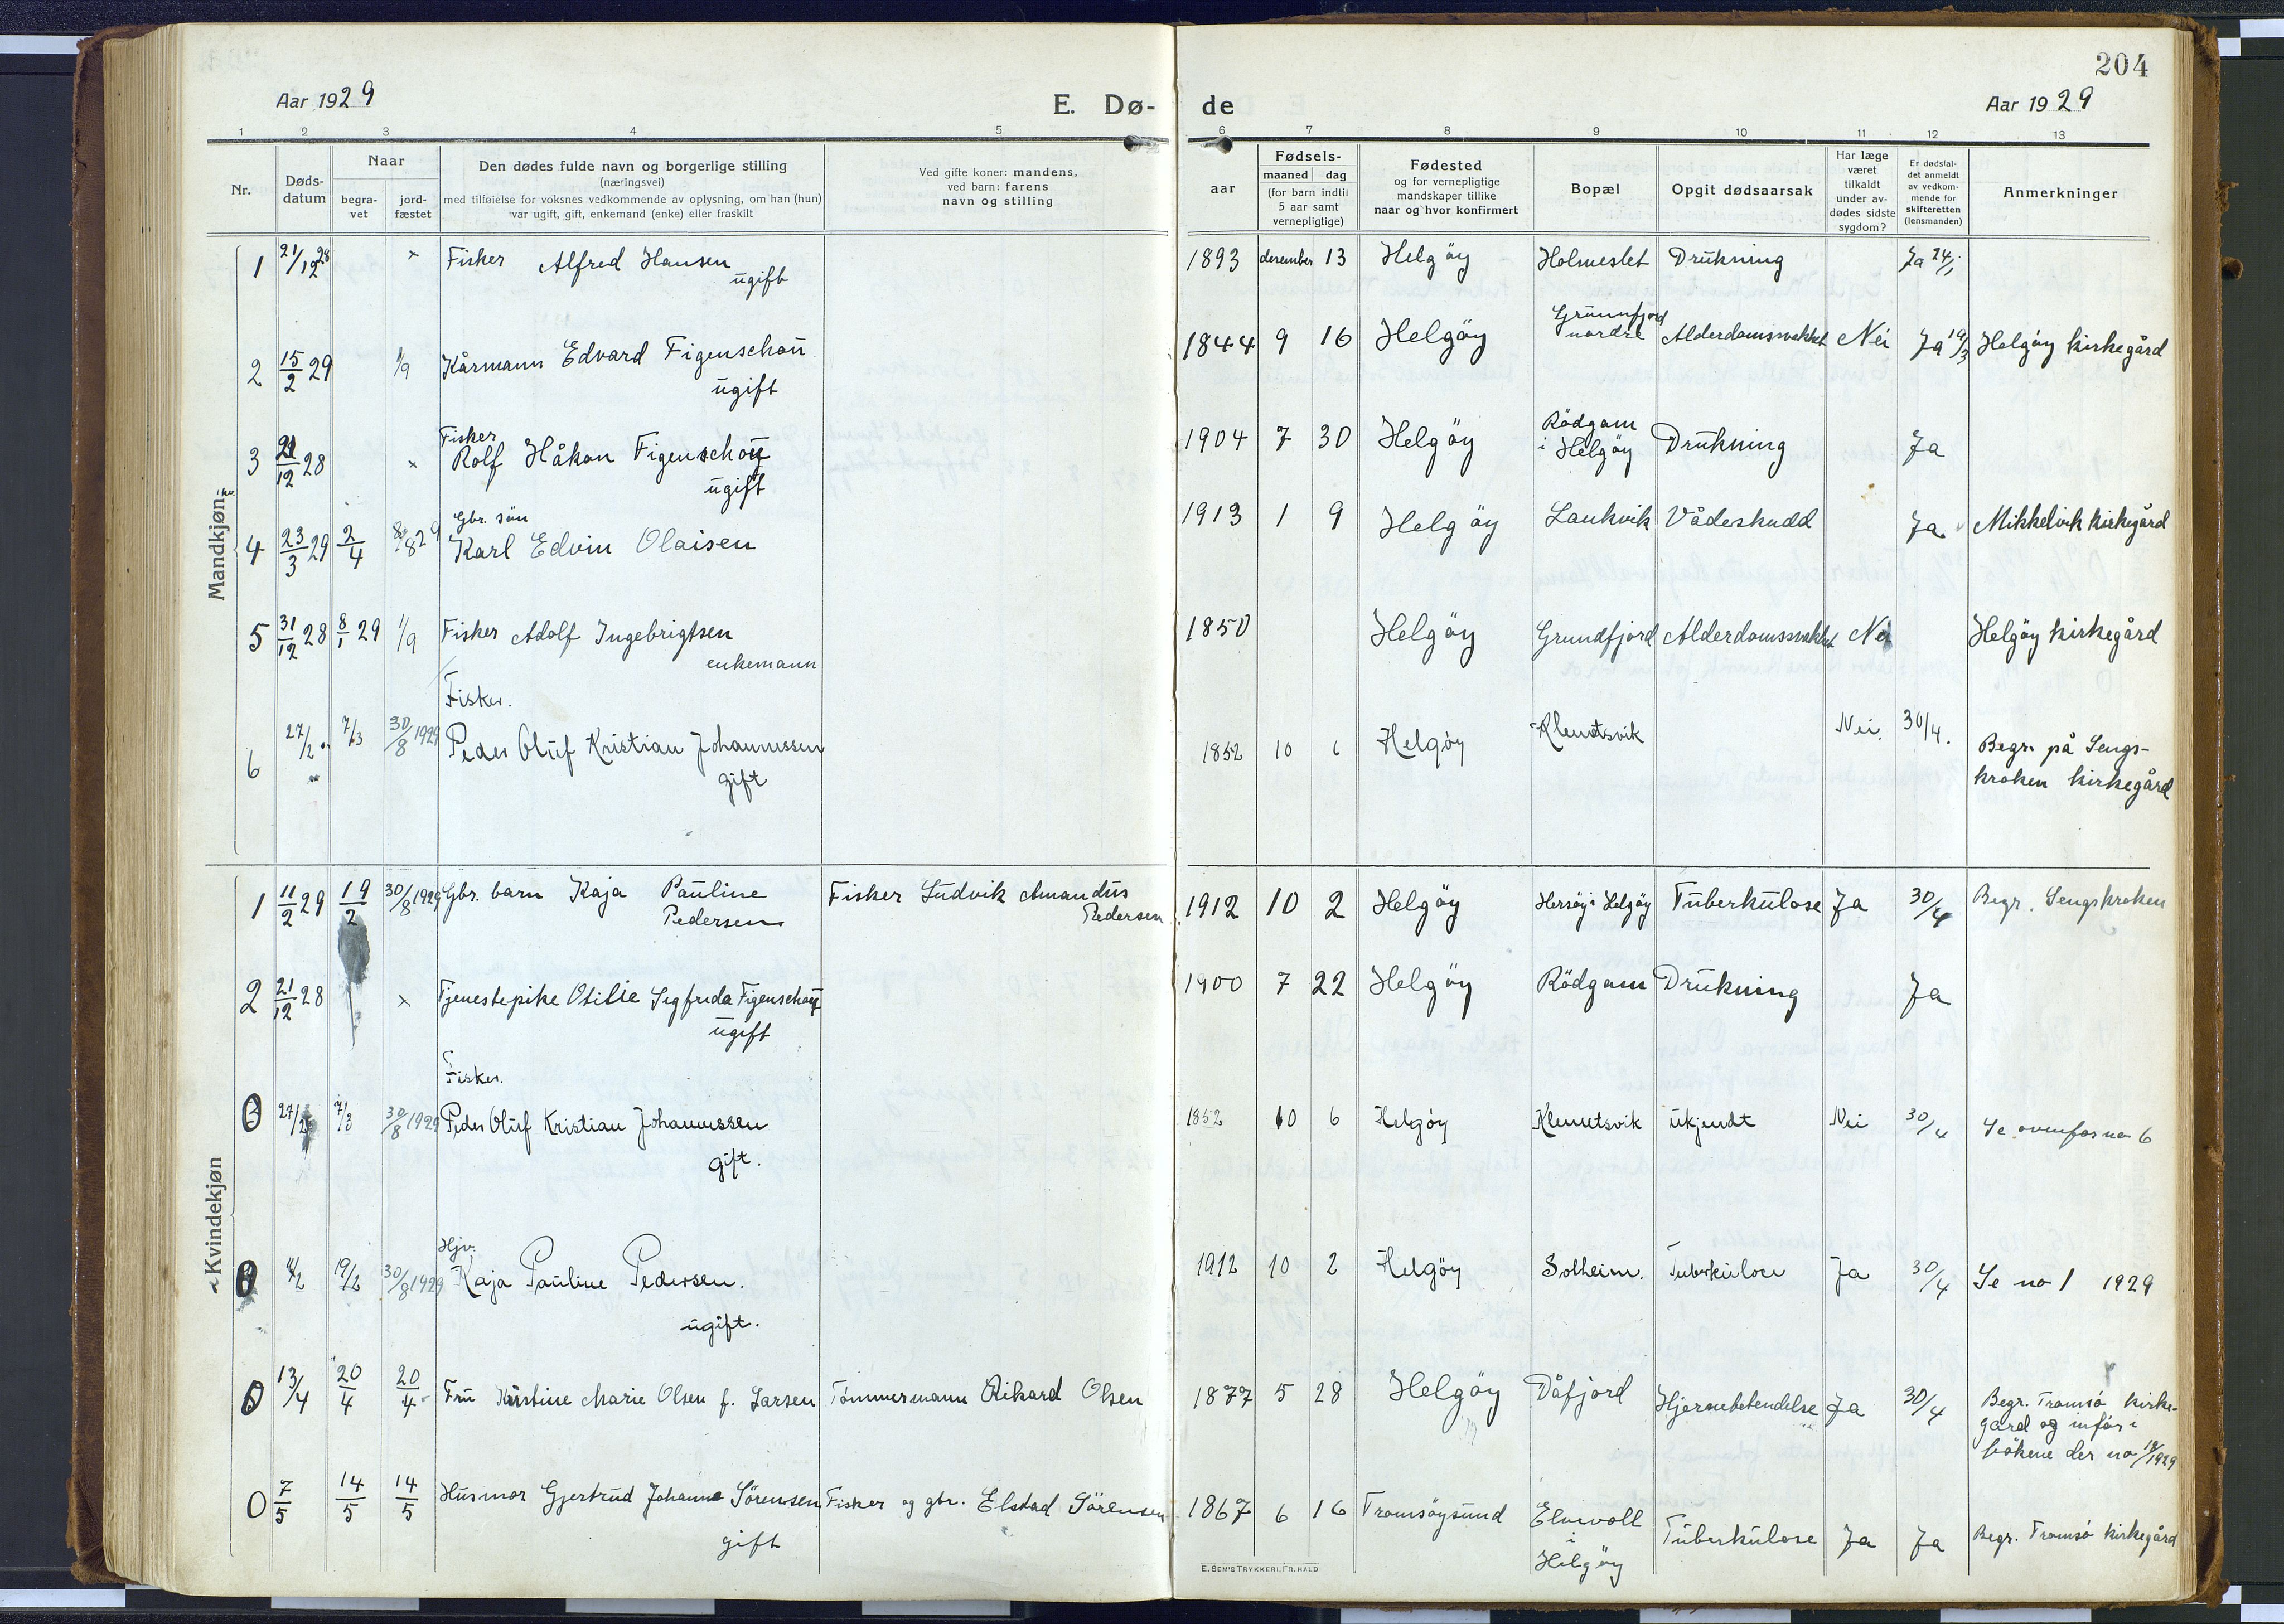 204
Aar 1929
E. Dø- de
Aar 1929
1 2 3 4 5 6 7 8 9 10 11 12 13
Nr.
Døds-
datum
Naar
begra-
vet
jord-
fæstet
Den dødes fulde navn og borgerlige stilling
(næringsvei)
med tilføielse for voksnes vedkommende av oplysning, om han (hun)
var ugift, gift, enkemand (enke) eller fraskilt
Ved gifte koner: mandens,
ved barn: farens
navn og stilling
Fødsels-
aar
maaned dag
(for barn indtil
5 aar samt
vernepligtige)
Fødested
og for vernepligtige
mandskaper tillike
naar og hvor konfirmert
Bopæl
Opgit dødsaarsak
Har læge
været
tilkaldt
under av-
dødes sidste
sygdom?
Er dødsfal-
det anmeldt
av vedkom-
mende for
skifteretten
(lensmanden)
Anmerkninger
Mandkjøn
1 21/12 28 × Fisker Alfred Hansen 1893 desember 13 Helgöy Holmeslet Drukning Ja 24/1
ugift
Grunnfjord
2 15/2 29 1/9 Kårmann Edvard Figenschou 1844 9 16 Helgöy nordre Alderdomssvakhet Nei Ja 19/3 Helgöy kirkegård
ugift
Fisker Rödgam
3 21/12 28 × Rolf Håkon Figenschou 1904 7 30 Helgöy i Helgöy Drukning Ja
ugift
Gbr. sön
4 23/3 29 2/4 8/8 29 Karl Edvin Olaisen 1913 1 9 Helgöy Laukvik Vådeskudd Ja Mikkelvik kirkegård
5 31/12 28 8/1 29 1/9 Fisker Adolf Ingebrigtsen 1850 Helgöy Grundfjord Alderdomssvakhet Nei Helgöy kirkegård
enkemann
Fisker.
6 27/2 7/3 30/8 1929 Peder Oluf Kristian Johannessen 1852 10 6 Helgöy Klemetsvik Nei. 30/4. Begr. på Sengs-
gift kroken kirkegård
Kvindekjøn
1 11/2 29 19/2 30/8 1929 Gbr. barn Kaja Pauline Fisker Ludvik Amandus 1912 10 2 Helgöy Hersöy i Helgöy Tuberkulose Ja 30/4 Begr. Sengskroken
Pedersen Pedersen
2 21/12 28 × Tjenestepike Otilie Sigfrida Figenschou 1900 7 22 Helgöy Rödgam Drukning Ja
ugift
Fisker.
0 27/2 7/3 30/8 1929 Peder Oluf Kristian Johannessen 1852 10 6 Helgöy Klemetsvik ukjendt Nei 30/4 Se ovenfor no 6
gift.
Hjv.
0 11/2 19/2 30/8 1929 Kaja Pauline Pedersen. 1912 10 2 Helgöy Solheim. Tuberkulose Ja 30/4 Se no 1 1929
ugift.
0 13/4 20/4 20/4 Fru Kristine Marie Olsen f. Larsen Tömmermann Rikard Olsen 1877 5 28 Helgöy Dåfjord Hjernebetendelse Ja 30/4 Begr. Tromsö kirke-
gård og inför i
bökene der no 18/1929
0 7/5 14/5 14/5 Husmor Gjertrud Johanne Sörensen Fisker og gbr. Elstad Sörensen 1867 6 16 Tromsöysund Elvevoll Tuberkulose Ja Ja Begr. Tromsö kirkegård
gift i
Helgöy
E. SEM'S TRYKKERI, FR. HALD